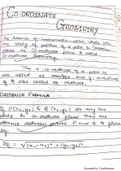 CO-ORDINATE
GEOMETRY
A branch of mathematics which deals with
the study of position of a point in
plane is Co-ordinate plane is called
Co-ordinate Geometry.
The x co-ordinate of a point is
also called as and y co-ordinate
is also called as ordinate.
DISTANCE FORMULA
If P(x₁, y₁) & Q(x₂, y₂) are any two
points in co-ordinate plane then the
distance between points P and Q is given
by
PQ = √(x₂-x₁)² + (y₂-y₁)²